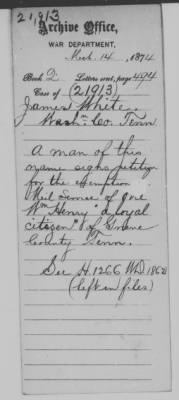 21,913
Archive Office,
WAR DEPARTMENT,
Mch. 14, 1874
Book D Letters sent, page 494
Case of (21913)
James White.
Washn Co. Tenn
A man of this
name signs petition
for the exemption
Mil Service of one
Wm Henry "a loyal
citizen" of Greene
County Tenn.
See H. 1266 W.D. 1862
(left in files)